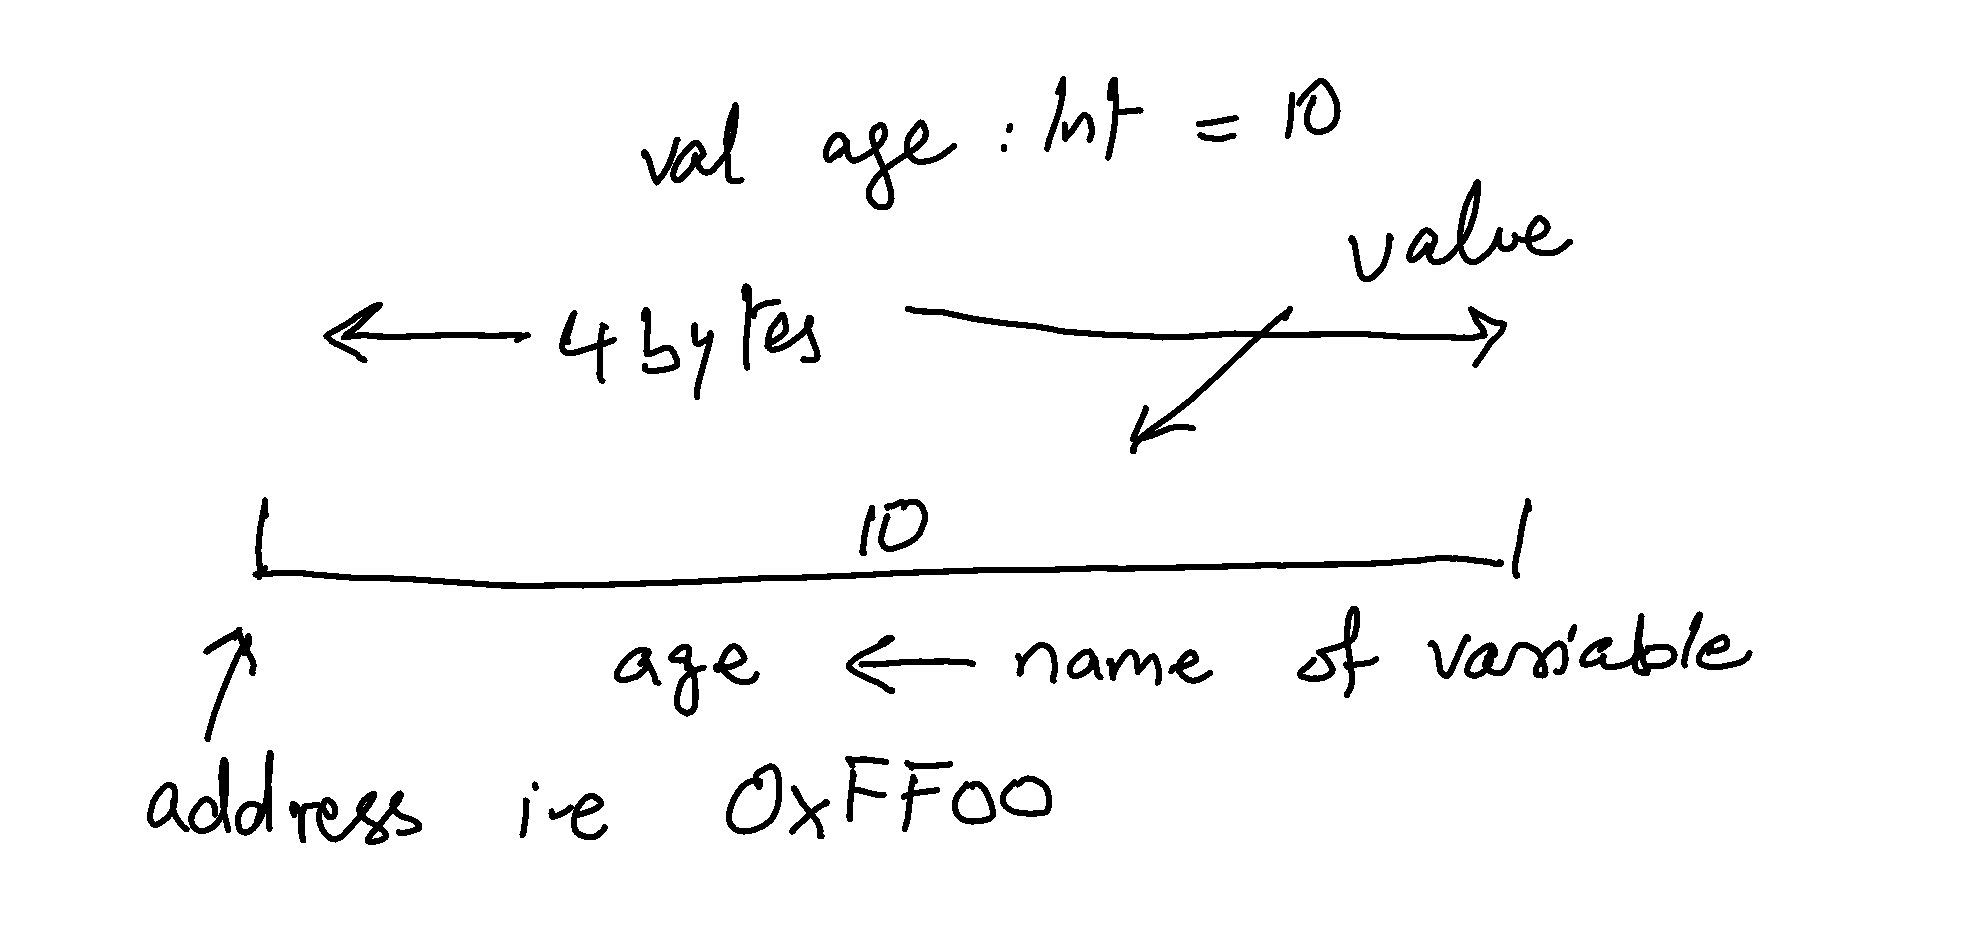 val age : Int = 10
value
4 bytes
10
age ← name of variable
address i.e 0xFF00